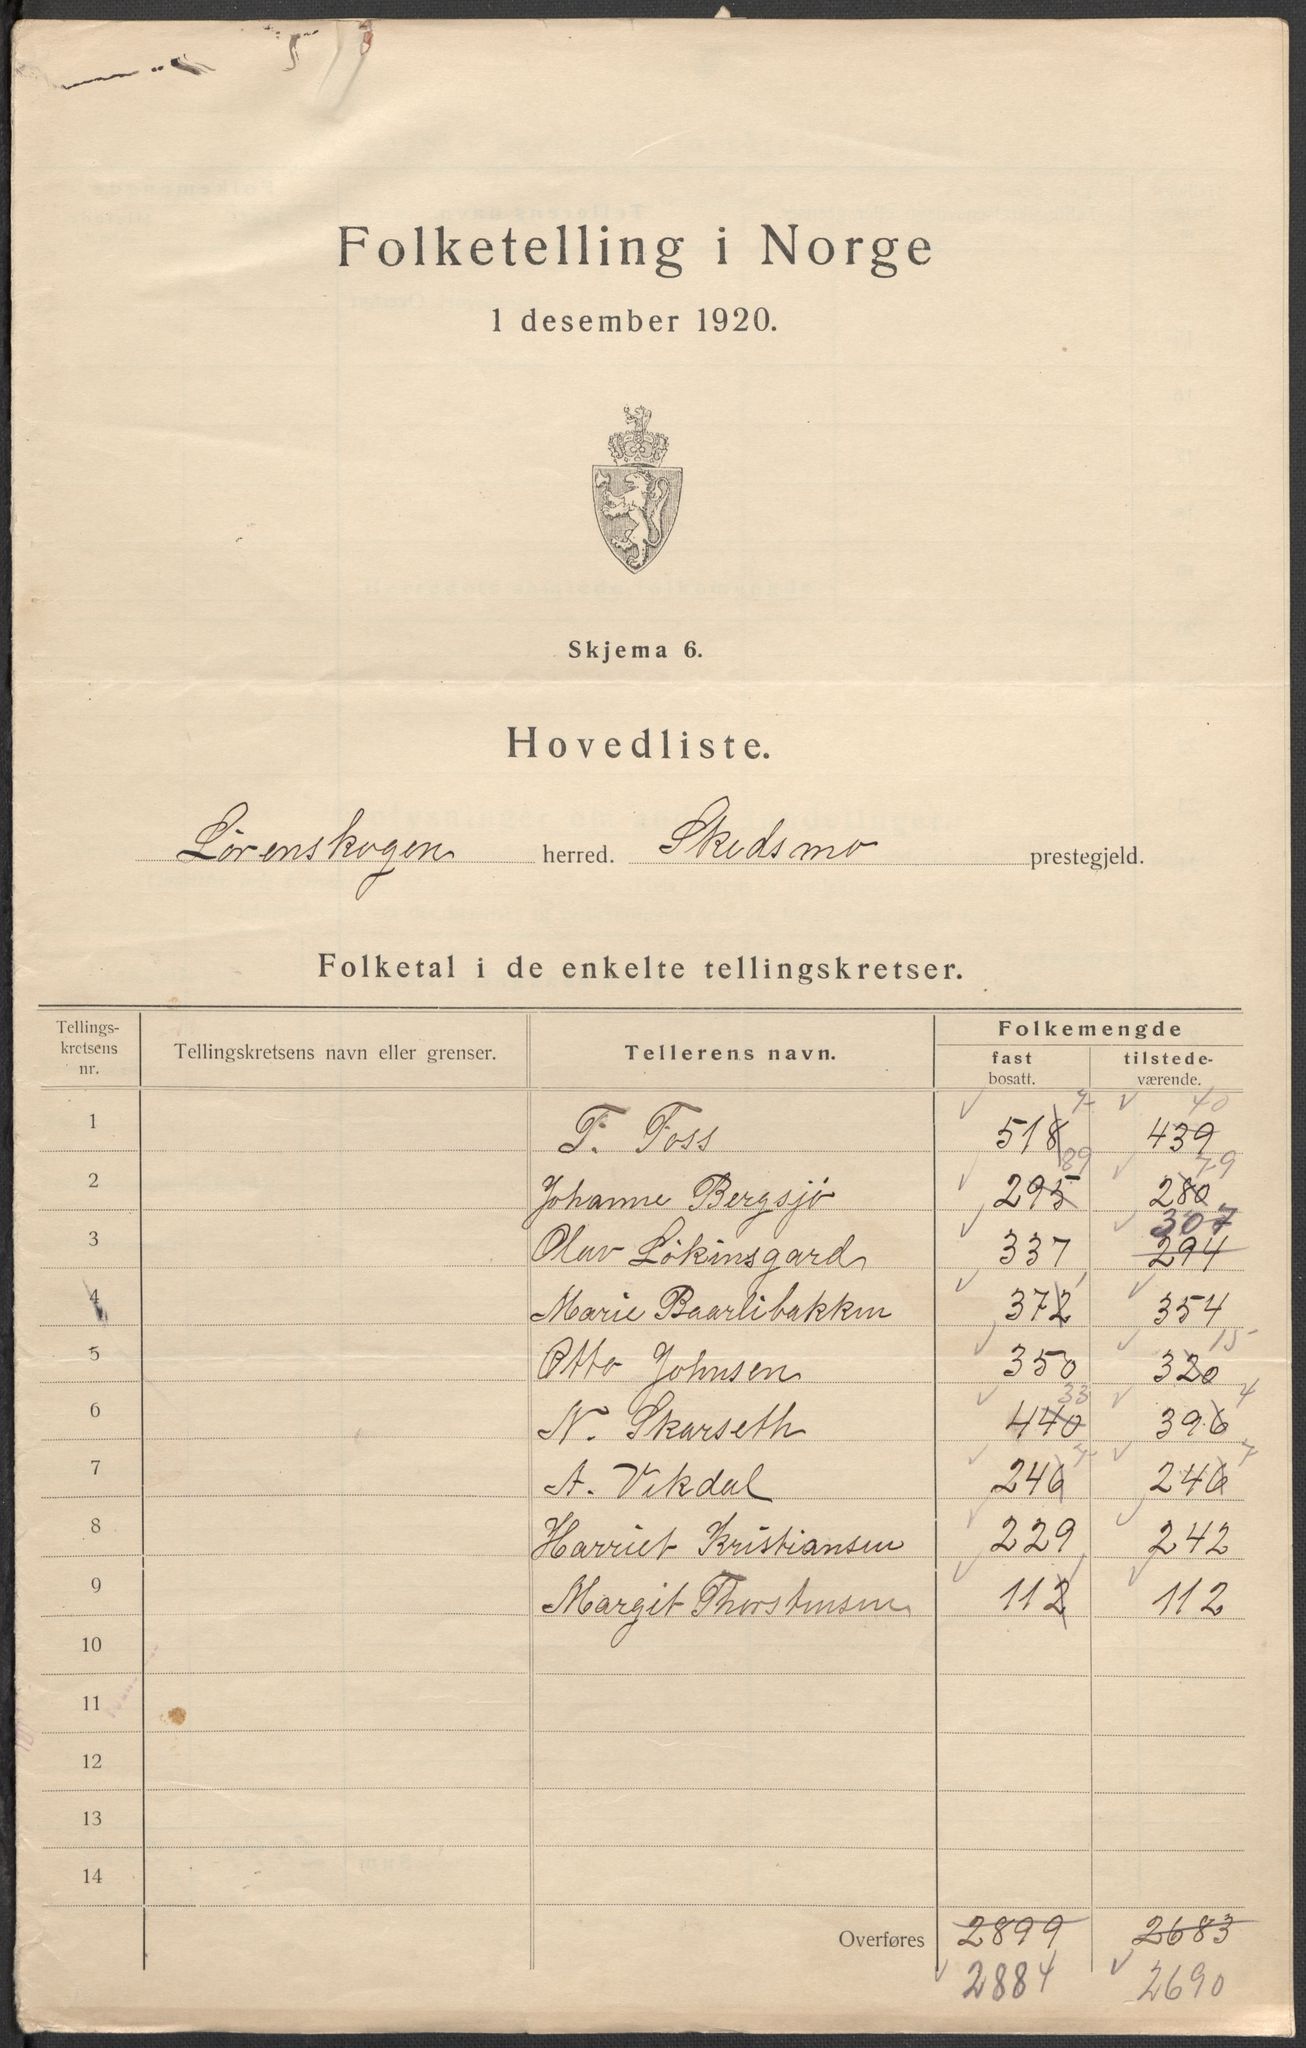 Folketelling i Norge
1 desember 1920.
Skjema 6.
Hovedliste.
Lörenskogen herred. Skedsmo prestegjeld.
Folketal i de enkelte tellingskretser.
Tellings-kretsens nr. Tellingskretsens navn eller grenser. Tellerens navn. Folkemengde
fast bosatt. tilstede-værende.
7 40
1 F. Foss 518 439
89 79
2 Johanne Bergsjö 295 280
307
3 Olav Lökinsgard 337 294
4 Marie Baarlibakken 372 354
15
5 Otto Johnsen 350 320
33 4
6 N. Skarseth 440 396
7 7
7 A. Vikdal 246 246
8 Harriet Kristiansen 229 242
1
9 Margit Thorstensen 112 112
10
11
12
13
14
Overføres 2899 2683
2884 2690